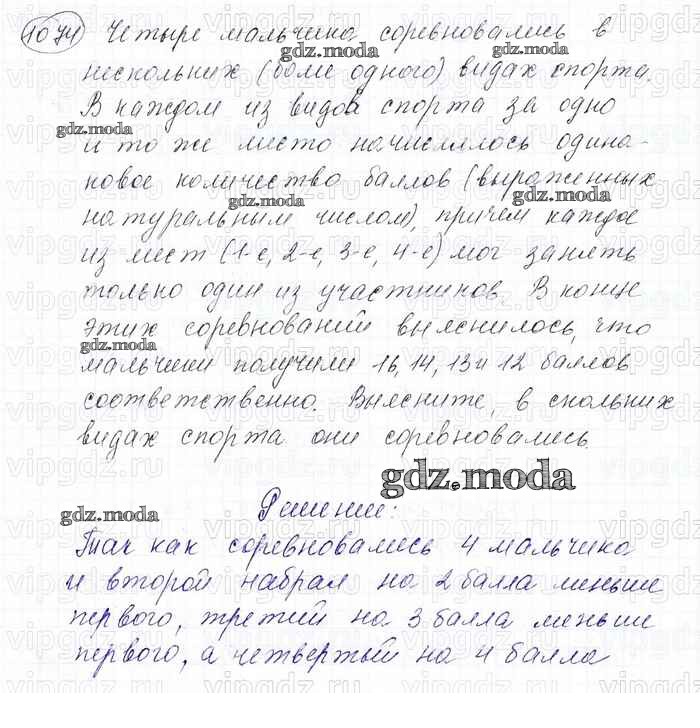 1074 Четыре мальчика соревновались в
gdz.moda gdz.moda
нескольких (более одного) видах спорта.
В каждом из видов спорта за одно
gdz.moda
и то же место начислялось одина-
ковое количество баллов (выраженных
gdz.moda gdz.moda
натуральным числом), причём каждое
из мест (1-е, 2-е, 3-е, 4-е) мог занять
только один из участников. В конце
этих соревнований выяснилось, что
gdz.moda
мальчики получили 16, 14, 13 и 12 баллов
соответственно. Выясните, в скольких
видах спорта они соревновались.
gdz.moda
Решение:
gdz.moda
Так как соревновались 4 мальчика
и второй набрал на 2 балла меньше
первого, третий на 3 балла меньше
первого, а четвертый на 4 балла
vipgdz.ru